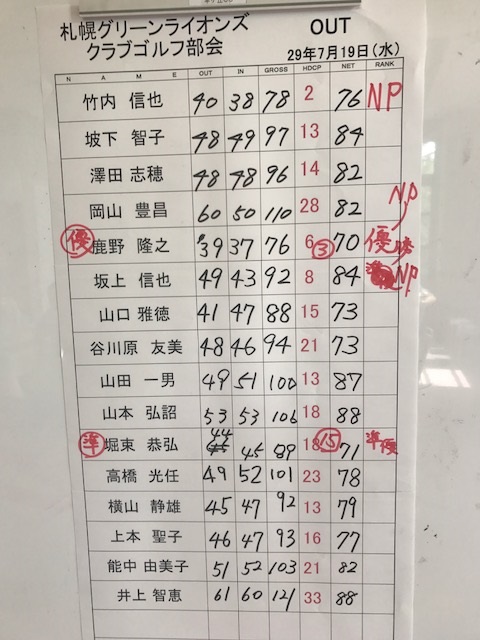 札幌グリーンライオンズ OUT
クラブゴルフ部会 29年7月19日(水)
N A M E OUT IN GROSS HDCP NET RANK
竹内 信也 40 38 78 2 76 NP
坡下 智子 48 49 97 13 84
澤田 志穂 48 48 96 14 82
岡山 豊昌 60 50 110 28 82 NP
優 鹿野 隆之 39 37 76 6 3 70 優勝
坂上 信也 49 43 92 8 84 NP
山口 雅徳 41 47 88 15 73
谷川原 友美 48 46 94 21 73
山田 一男 49 51 100 13 87
山本 弘詔 53 53 106 18 88
準 堀束 恭弘 44 45 89 18 15 71 準優
高橋 光任 49 52 101 23 78
横山 静雄 45 47 92 13 79
上本 聖子 46 47 93 16 77
能中 由美子 51 52 103 21 82
井上 智恵 61 60 121 33 88